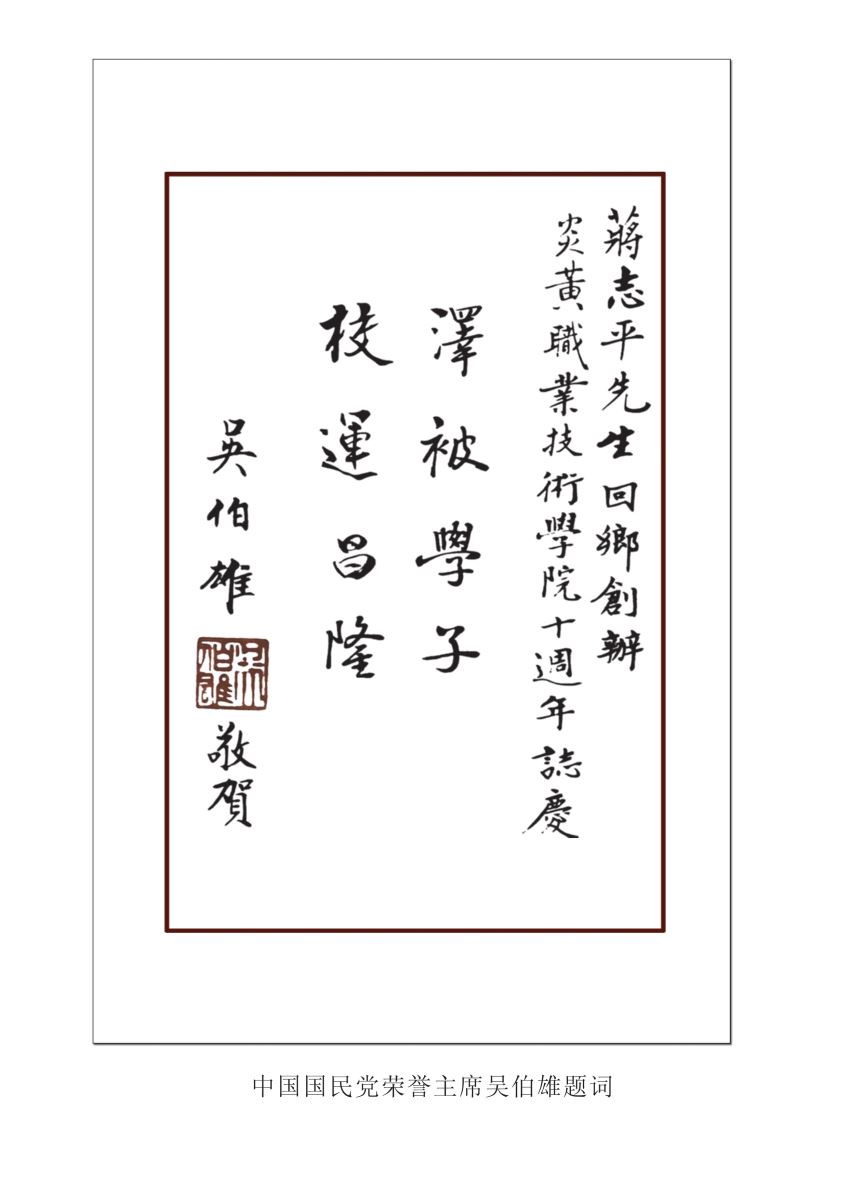 蔣志平先生回鄉創辦
炎黃職業技術學院十週年誌慶
澤被學子
校運昌隆
吳伯雄
吳伯雄
敬賀
中国国民党荣誉主席吴伯雄题词